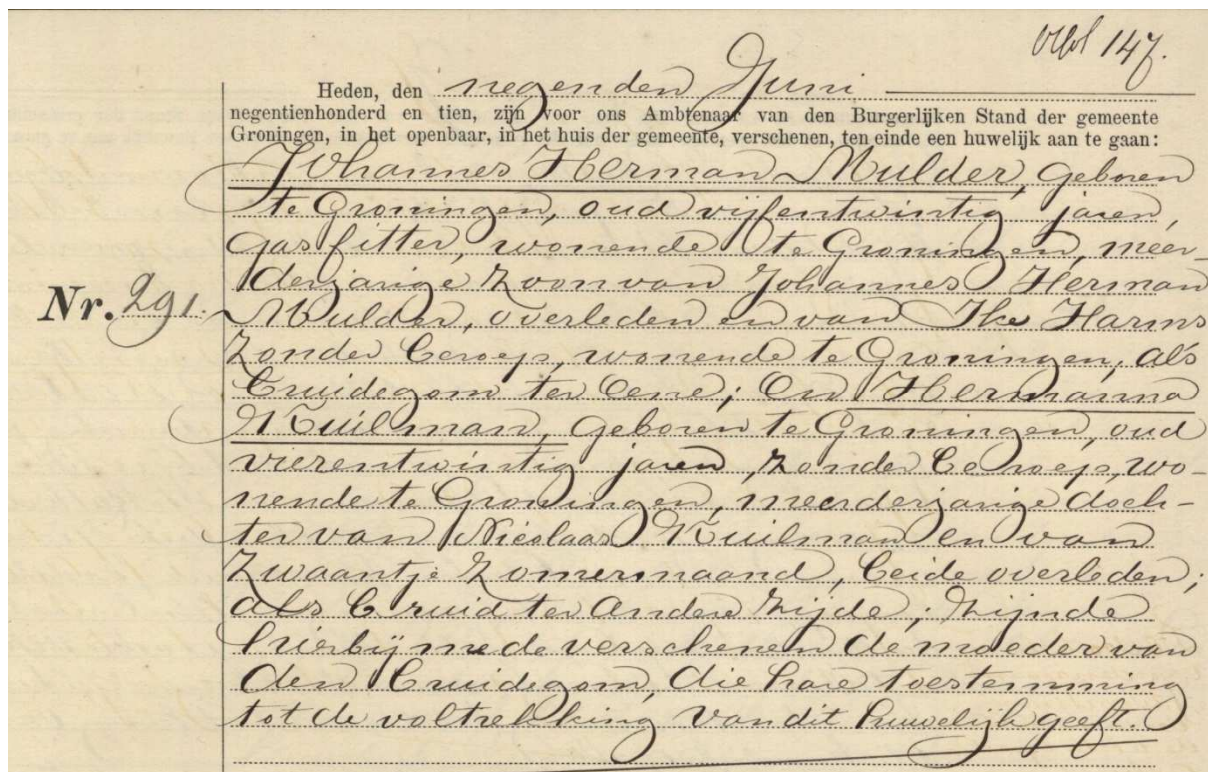 147.
Heden, den negenden Juni
negentienhonderd en tien, zijn voor ons Ambtenaar van den Burgerlijken Stand der gemeente
Groningen, in het openbaar, in het huis der gemeente, verschenen, ten einde een huwelijk aan te gaan:
Johannes Herman Mulder, geboren
te Groningen, oud vijfentwintig jaren,
gasfitter, wonende te Groningen, meer-
derjarige zoon van Johannes Herman
Nr. 291. Mulder, overleden en van Ike Harms
zonder beroep, wonende te Groningen, als
bruidegom ter eene; en Hermanna
Kuilman, geboren te Groningen, oud
vierentwintig jaren, zonder beroep, wo-
nende te Groningen, meerderjarige doch-
ter van Nicolaas Kuilman en van
Zwaantje Zomermaand, beide overleden;
als bruid ter andere zijde; zijnde
hierbij mede verschenen de moeder van
den bruidegom, die hare toestemming
tot de voltrekking van dit huwelijk geeft.